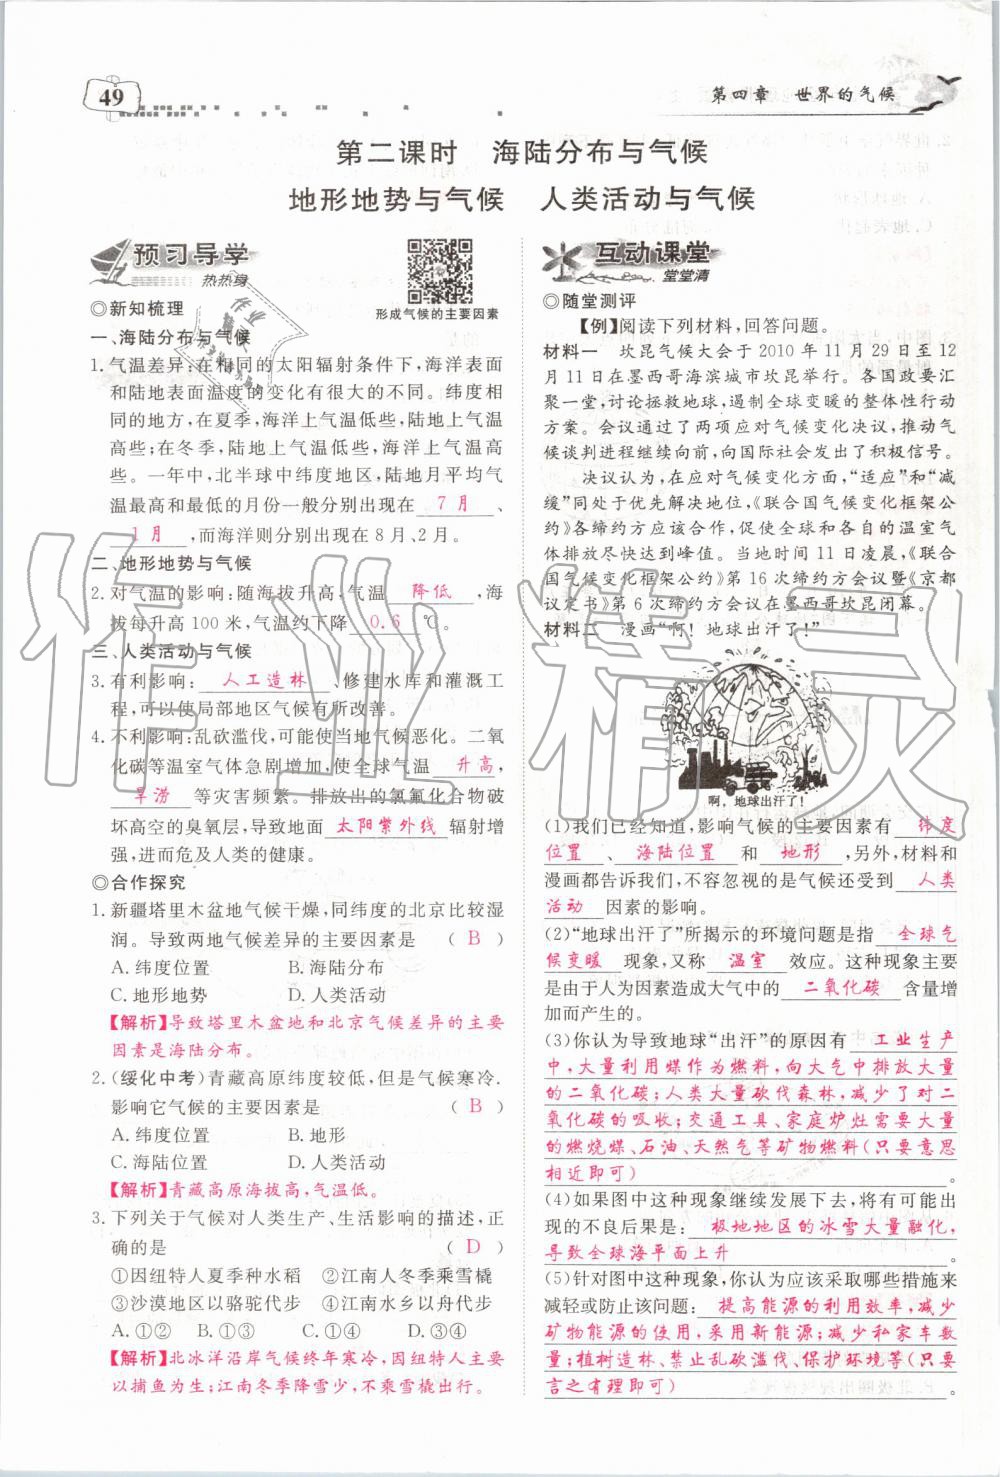 49
第四章 世界的气候
第二课时 海陆分布与气候
地形地势与气候 人类活动与气候
预习导学
热热身
形成气候的主要因素
◎新知梳理
一、海陆分布与气候
1. 气温差异:在相同的太阳辐射条件下,海洋表面
和陆地表面温度的变化有很大差异。在纬度
相同的地方,在夏季,海洋上气温低些,陆地上气温
高些;在冬季,陆地上气温低些,海洋上气温高
些。一年中,北半球中纬度地区,陆地月平均气
温最高和最低的月份一般分别出现在 7月 、
1月 ,而海洋则分别出现在8月、2月。
二、地形地势与气候
2. 对气温的影响:随海拔升高,气温 降低 ,海
拔每升高100米,气温约下降 0.6 ℃。
三、人类活动与气候
3. 有利影响: 人工造林 、修建水库和灌溉工
程,可以使局部地区气候有所改善。
4. 不利影响:乱砍滥伐,可能使当地气候恶化。二氧
化碳等温室气体急剧增加,使全球气温 升高,
旱涝 等灾害频繁。排放的氯氟化合物破
坏高空的臭氧层,导致地面 太阳紫外线 辐射增
强,进而危及人类的健康。
◎合作探究
1. 新疆塔里木盆地气候干燥,同纬度的北京比较湿
润。导致两地气候差异的主要因素是 ( B )
A. 纬度位置 B. 海陆分布
C. 地形地势 D. 人类活动
【解析】导致塔里木盆地和北京气候差异的主要
因素是海陆分布。
2. (绥化中考)青藏高原纬度较低,但是气候寒冷.
影响它气候的主要因素是 ( B )
A. 纬度位置 B. 地形
C. 海陆位置 D. 人类活动
【解析】青藏高原海拔高,气温低。
3. 下列关于气候对人类生产、生活影响的描述,正
确的是 ( D )
①因纽特人夏季种水稻 ②江南人冬季乘雪橇
③沙漠地区以骆驼代步 ④江南水乡以舟代步
A. ①② B. ①③ C. ②④ D. ③④
【解析】北冰洋沿岸气候终年寒冷,因纽特人主要
以捕鱼为生;江南冬季降雪少,不乘雪橇出行。
互动课堂
堂堂清
◎随堂测评
【例】阅读下列材料,回答问题。
材料一 坎昆气候大会于2010年11月29日至12
月11日在墨西哥海滨城市坎昆举行。各国政要汇
聚一堂,讨论拯救地球,遏制全球变暖的整体性行动
方案。会议通过了两项应对气候变化决议,推动气
候谈判进程继续向前,向国际社会发出了积极信号。
决议认为,在应对气候变化方面,“适应”和“减
缓”同处于优先解决地位,《联合国气候变化框架公
约》各缔约方应该合作,促使全球和各自的温室气
体排放尽快达到峰值。当地时间11日凌晨,《联合
国气候变化框架公约》第16次缔约方会议暨《京都
议定书》第6次缔约方会议在墨西哥坎昆闭幕。
材料二 漫画“啊!地球出汗了!”
啊,地球出汗了!
(1)我们已经知道,影响气候的主要因素有 纬度
位置 、 海陆位置 和 地形 ,另外,材料和
漫画都告诉我们,不容忽视的是气候还受到 人类
活动 因素的影响。
(2)“地球出汗了”所揭示的环境问题是指 全球气
候变暖 现象,又称 温室 效应。这种现象主要
是由于人为因素造成大气中的 二氧化碳 含量增
加而产生的。
(3)你认为导致地球“出汗”的原因有 工业生产
中,大量利用煤作为燃料,向大气中排放大量
的二氧化碳;人类大量砍伐森林,减少了对二
氧化碳的吸收;交通工具、家庭炉灶需要大量
的燃烧煤、石油、天然气等矿物燃料(只要意思
相近即可) 。
(4)如果图中这种现象继续发展下去,将有可能出
现的不良后果是: 极地地区的冰雪大量融化,
导致全球海平面上升 。
(5)针对图中这种现象,你认为应该采取哪些措施来
减轻或防止该问题: 提高能源的利用效率,减少
矿物能源的使用,采用新能源;减少私家车数
量;植树造林、禁止乱砍滥伐、保护环境等(只要
言之有理即可) 。
作业精灵